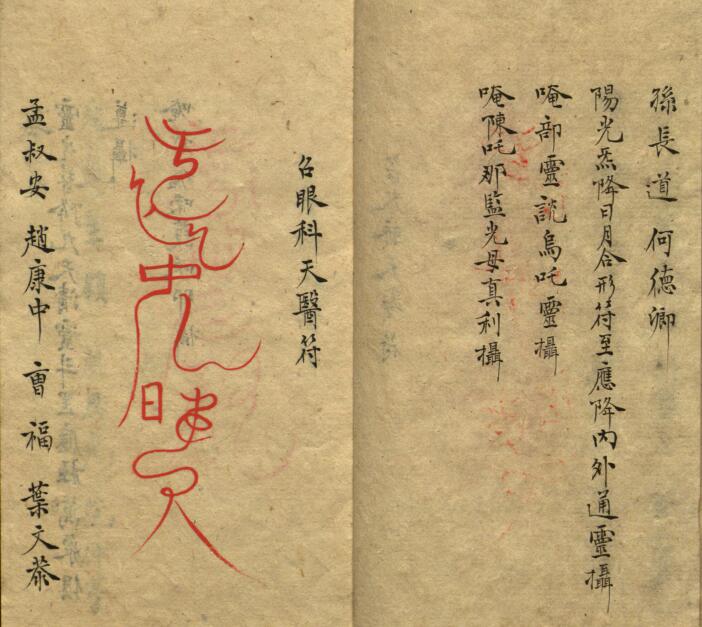 孫長道 何德卿
陽光炁降日月合形符至應降内外通靈攝
唵部靈談烏吒靈攝
唵陳吒那監光母真利攝
召眼科天醫符
孟叔安 趙康中 曺福 葉文恭